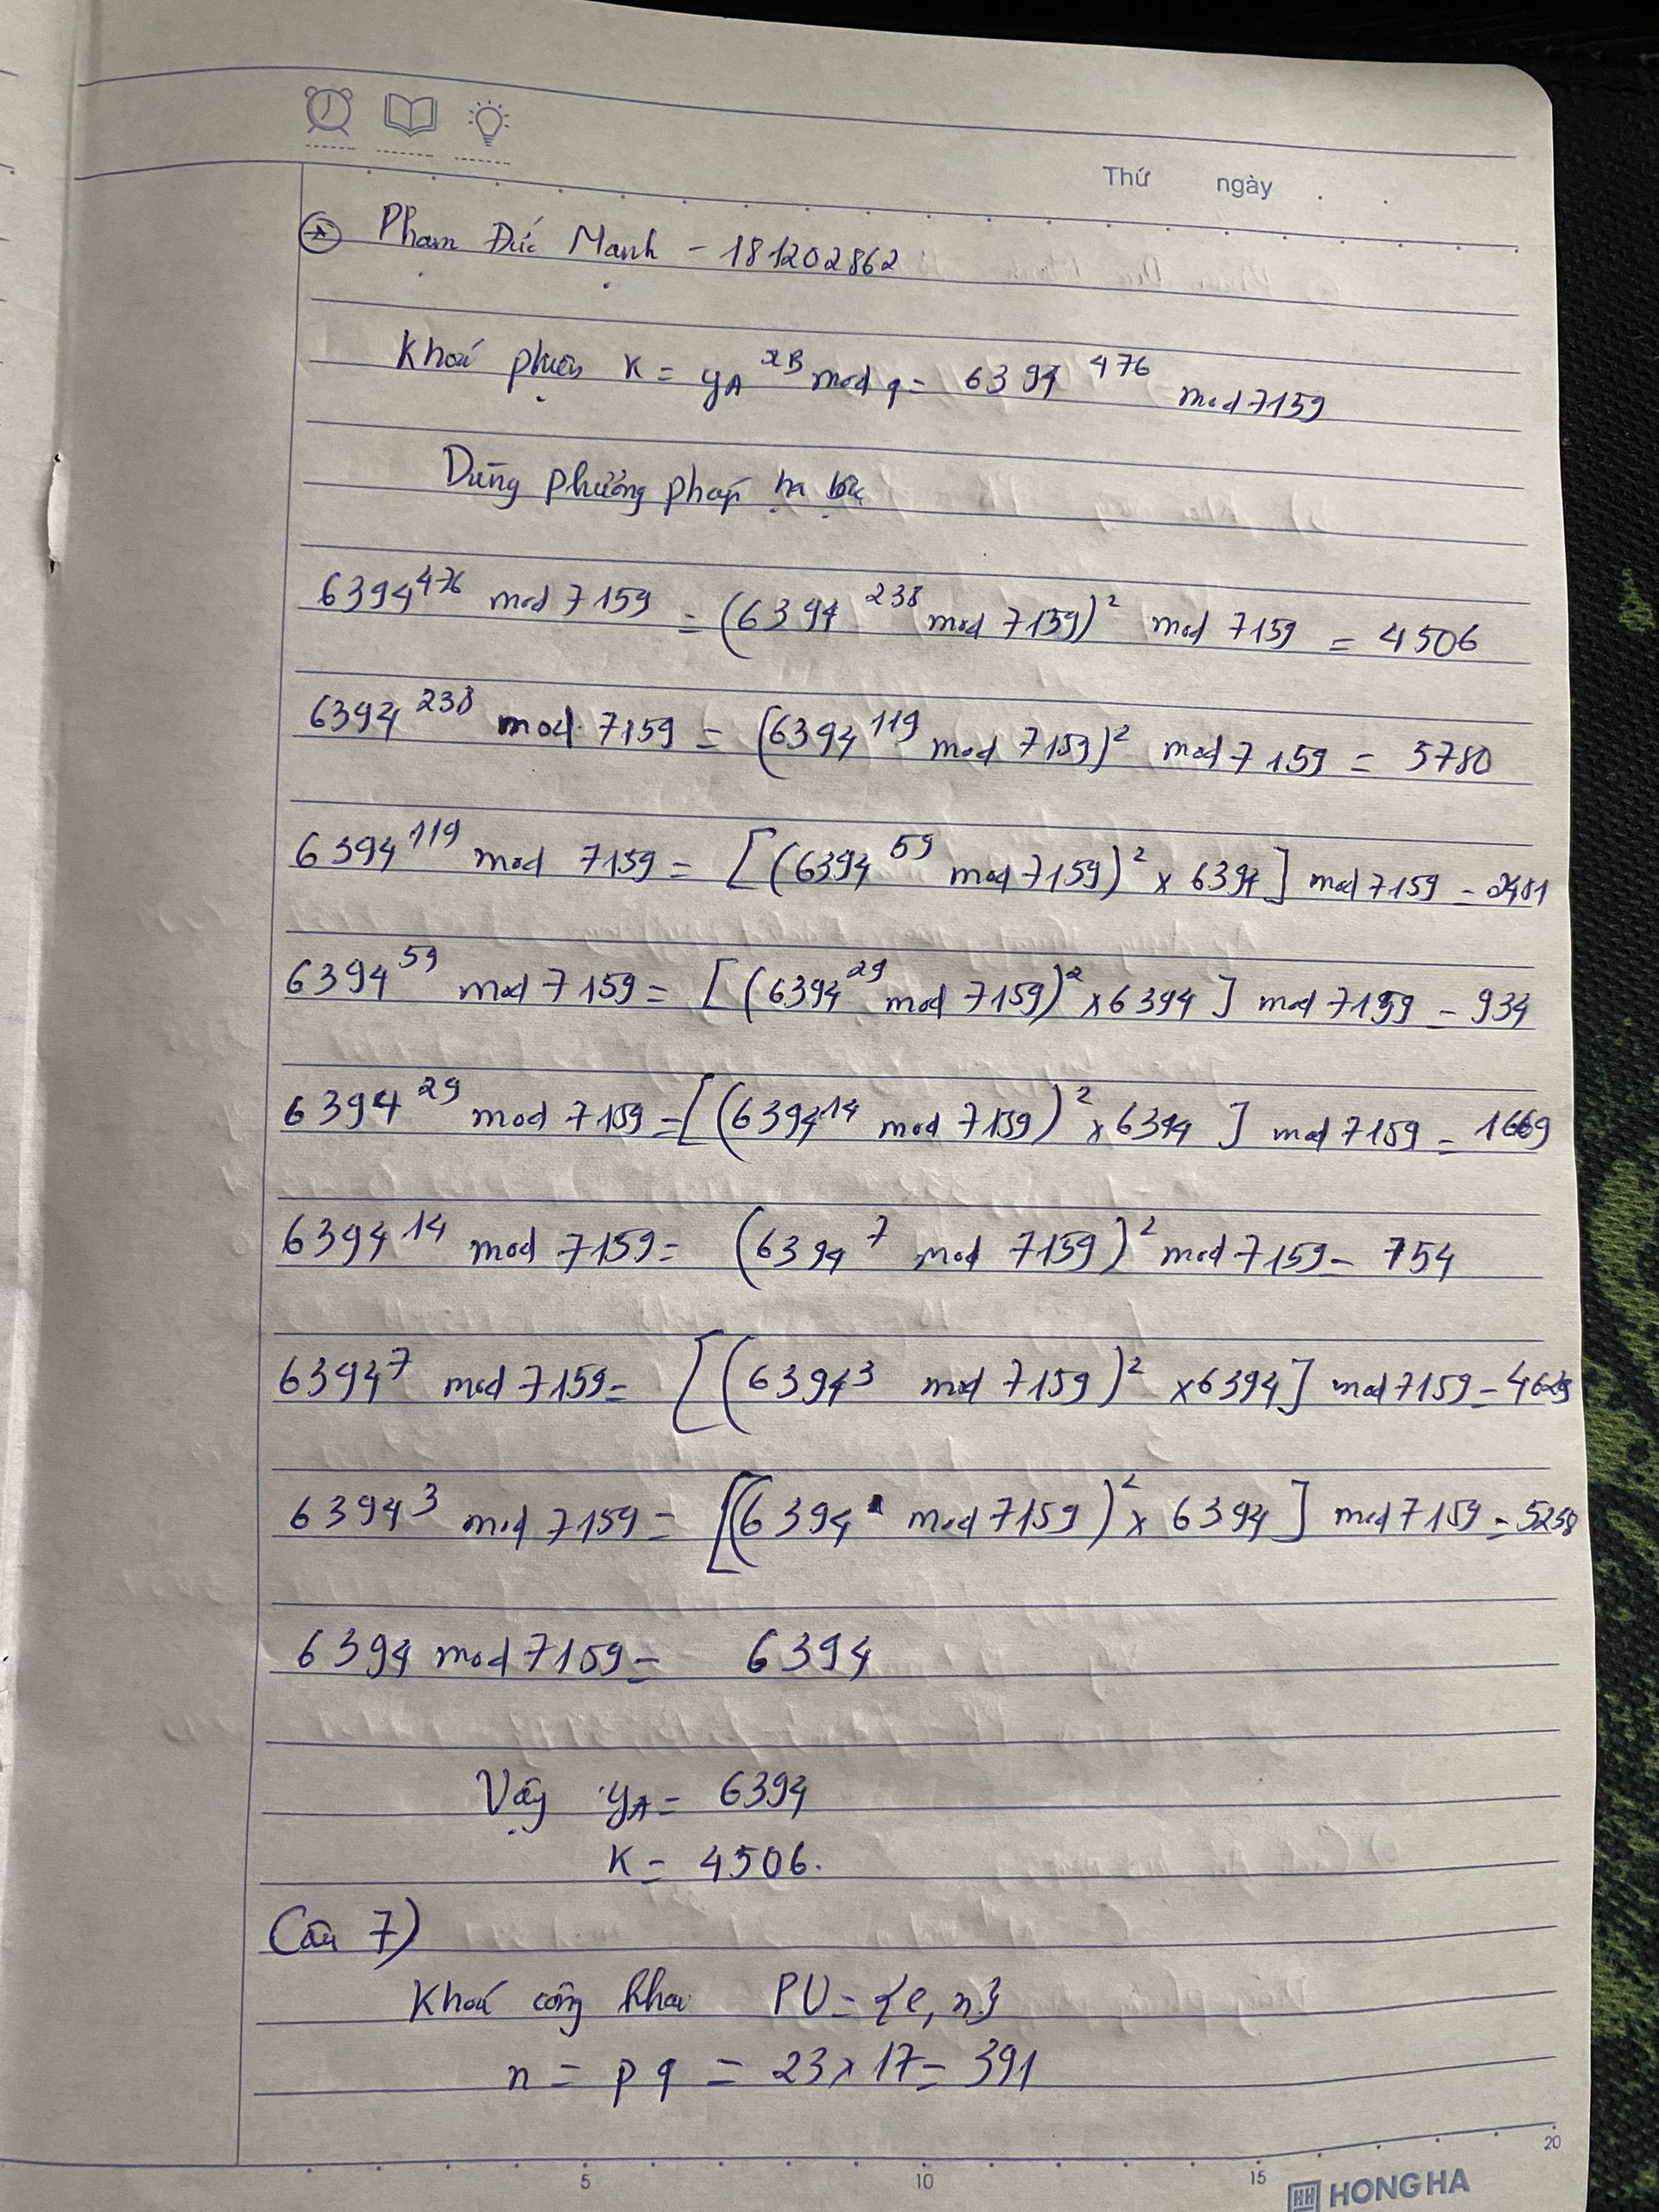 Thứ ngày
Phạm Đức Mạnh - 181202862
Khoá phiên K = yA^xB mod q = 6394^476 mod 7159
Dùng phương pháp hạ bậc
6394^476 mod 7159 = (6394^238 mod 7159)^2 mod 7159 = 4506
6394^238 mod 7159 = (6394^119 mod 7159)^2 mod 7159 = 5780
6394^119 mod 7159 = [(6394^59 mod 7159)^2 x 6394] mod 7159 = 2481
6394^59 mod 7159 = [(6394^29 mod 7159)^2 x 6394] mod 7159 = 934
6394^29 mod 7159 = [(6394^14 mod 7159)^2 x 6394] mod 7159 = 1669
6394^14 mod 7159 = (6394^7 mod 7159)^2 mod 7159 = 754
6394^7 mod 7159 = [(6394^3 mod 7159)^2 x 6394] mod 7159 =
6394^3 mod 7159 = [(6394 mod 7159)^2 x 6394] mod 7159 = 5258
6394 mod 7159 = 6394
Vậy yA = 6394
K = 4506.
Câu 7)
Khoá công khai PU = {e, n}
n = pq = 23 x 17 = 391
5 10 15 20
HH HONG HA